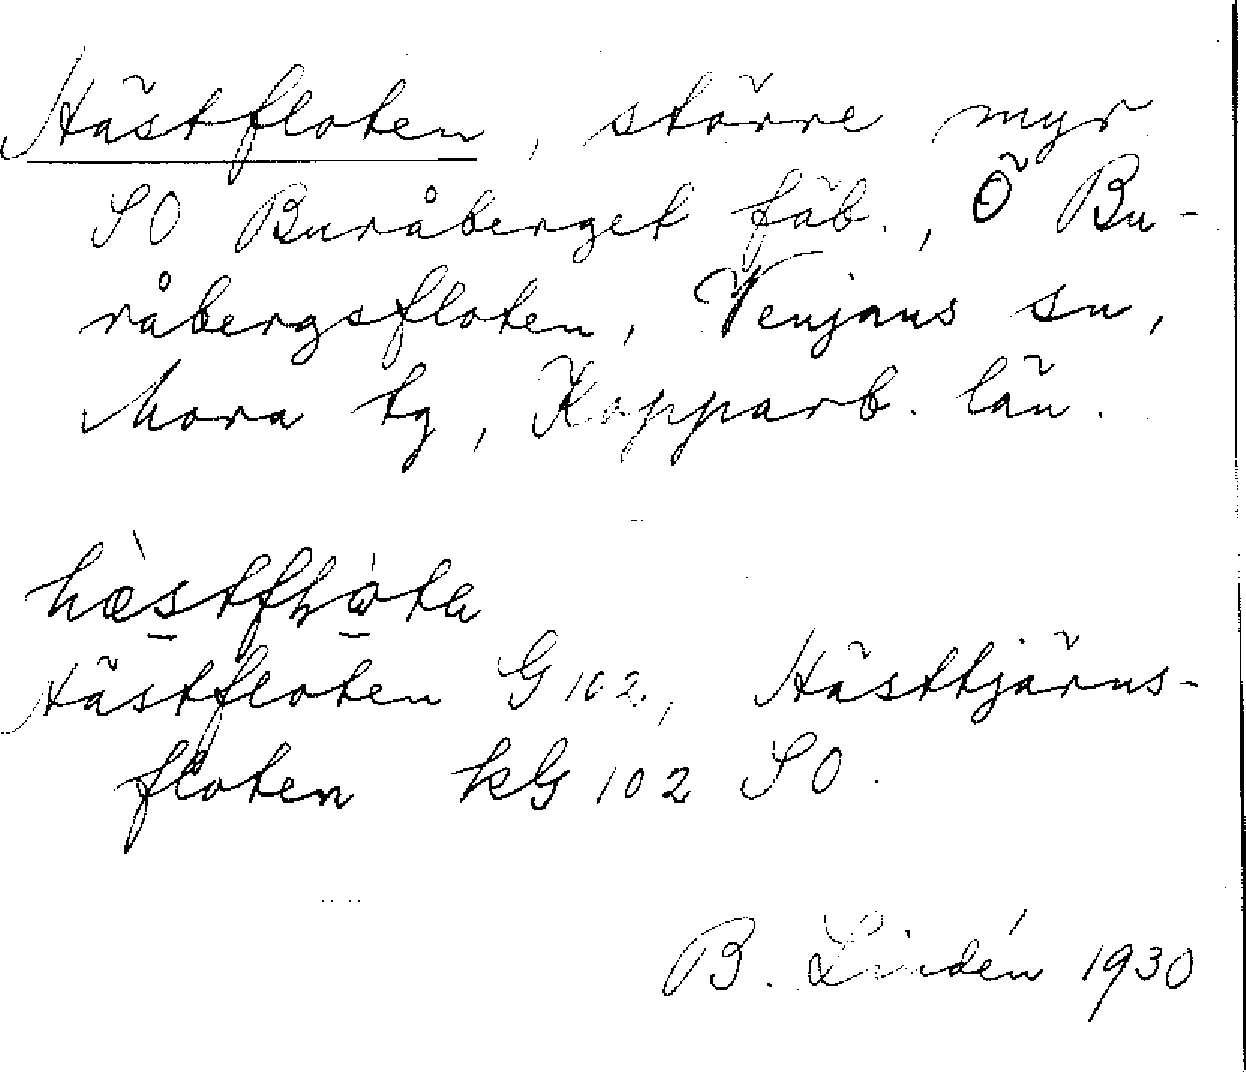 Hästfloten, större myr
SO Buråberget fäb., Ö Bu-
råbergsfloten, Venjans sn,
Mora tg, Kopparb. län.
Hästfloten G 102, Hästtjärns-
floten kG 102 SO.
B. Lindén 1930